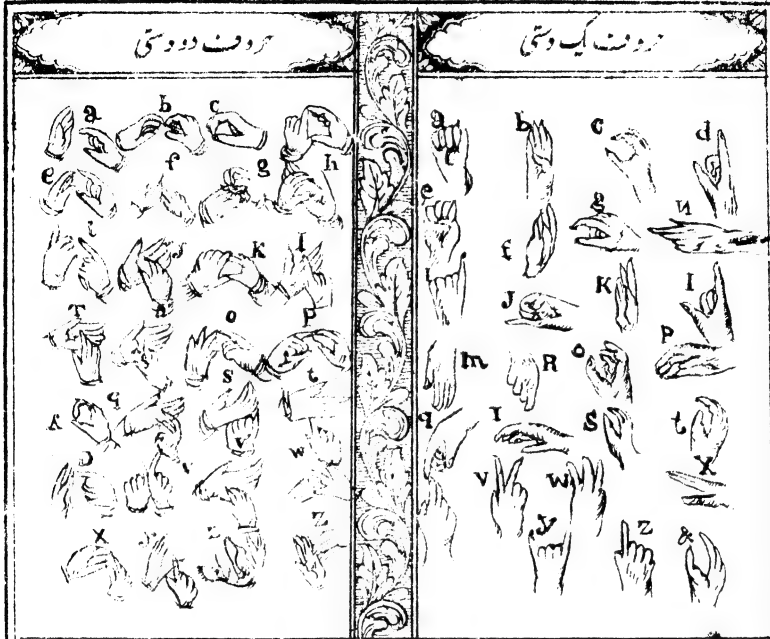 حروف دو دستی
a b c
e f g h
i j K l
T n o p
q s t
v w
x z Z
حروف یک دستی
a b c d
e f g
J K I
m R o P
q S t
V W X
y Z &